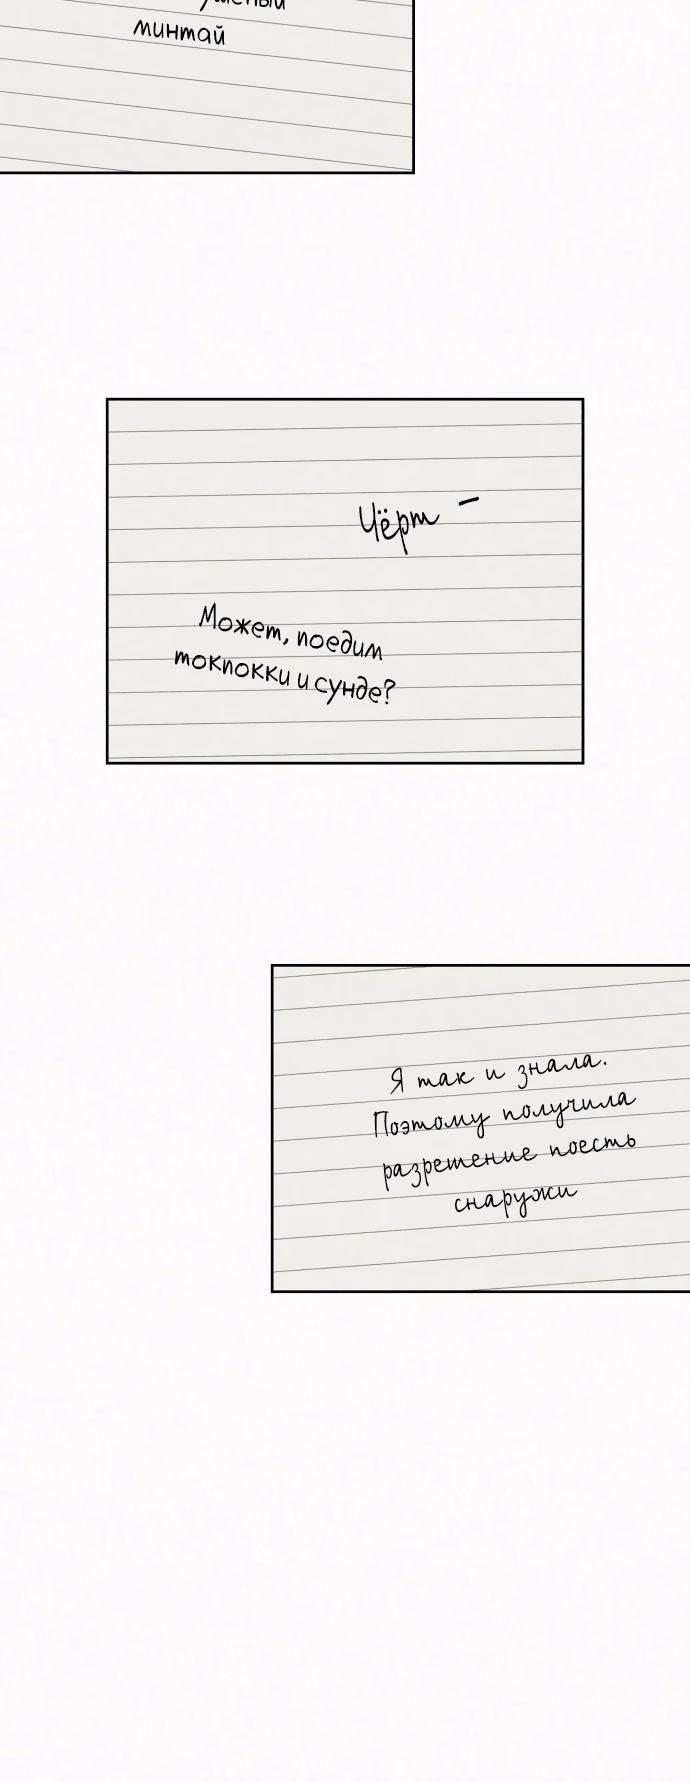 минтай
Чёрт –
Может, поедим
токпокки и сунде?
Я так и знала.
Поэтому получила
разрешение поесть
снаружи